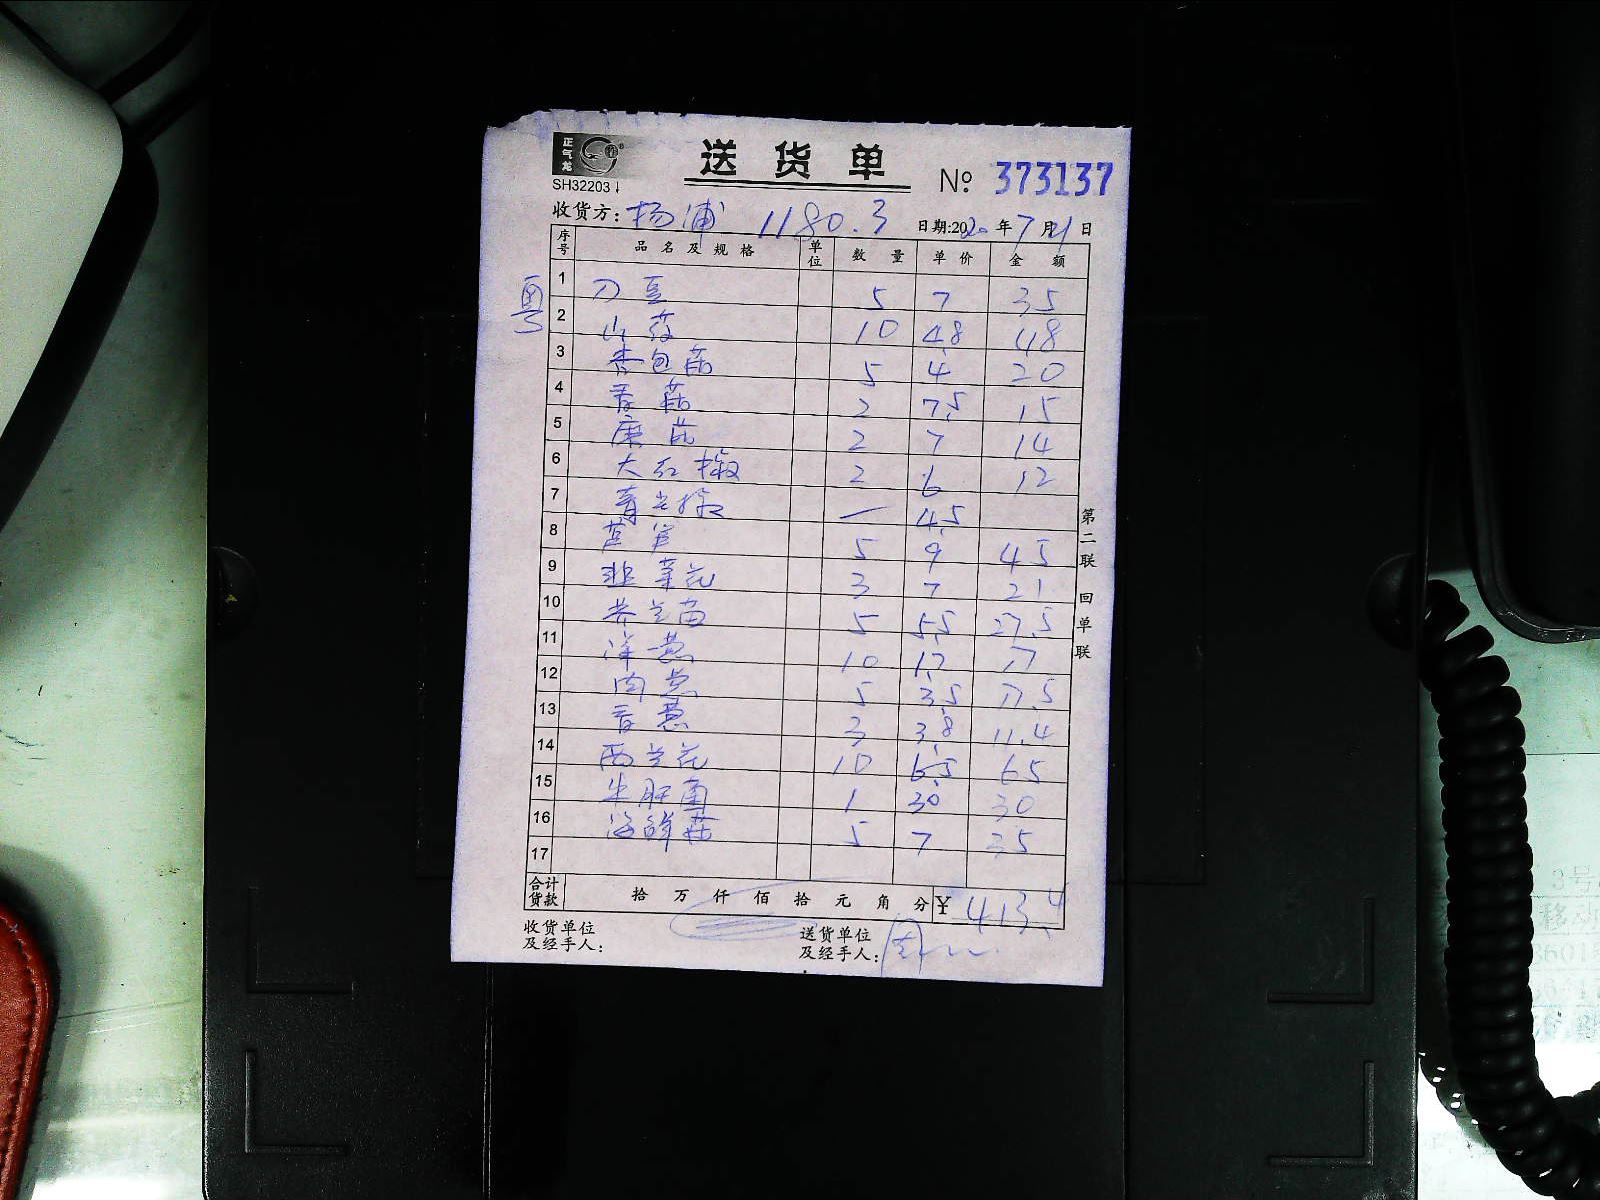 正气龙
SH32203
送货单
№ 373137
收货方: 杨浦 1180.3
日期:2020年7月21日
序号 品名及规格 单位 数量 单价 金额
粤
1 刀豆 5 7 35
2 山药 10 4.8 48
3 杏包菇 5 4 20
4 香菇 2 7.5 15
5 蘑菇 2 7 14
6 大红椒 2 6 12
7 青尖椒 — 4.5
8 莴笋 5 9 45
9 韭菜花 3 7 21
10 芥兰苗 5 5.5 27.5
11 洋葱 10 1.7 17
12 肉葱 5 3.5 17.5
13 香葱 3 3.8 11.4
14 西兰花 10 6.5 65
15 牛肝菌 1 30 30
16 海鲜菇 5 7 35
17
合计货款 拾 万 仟 佰 拾 元 角 分 ¥ 413.4
收货单位及经手人:
送货单位及经手人:
第二联 回单联